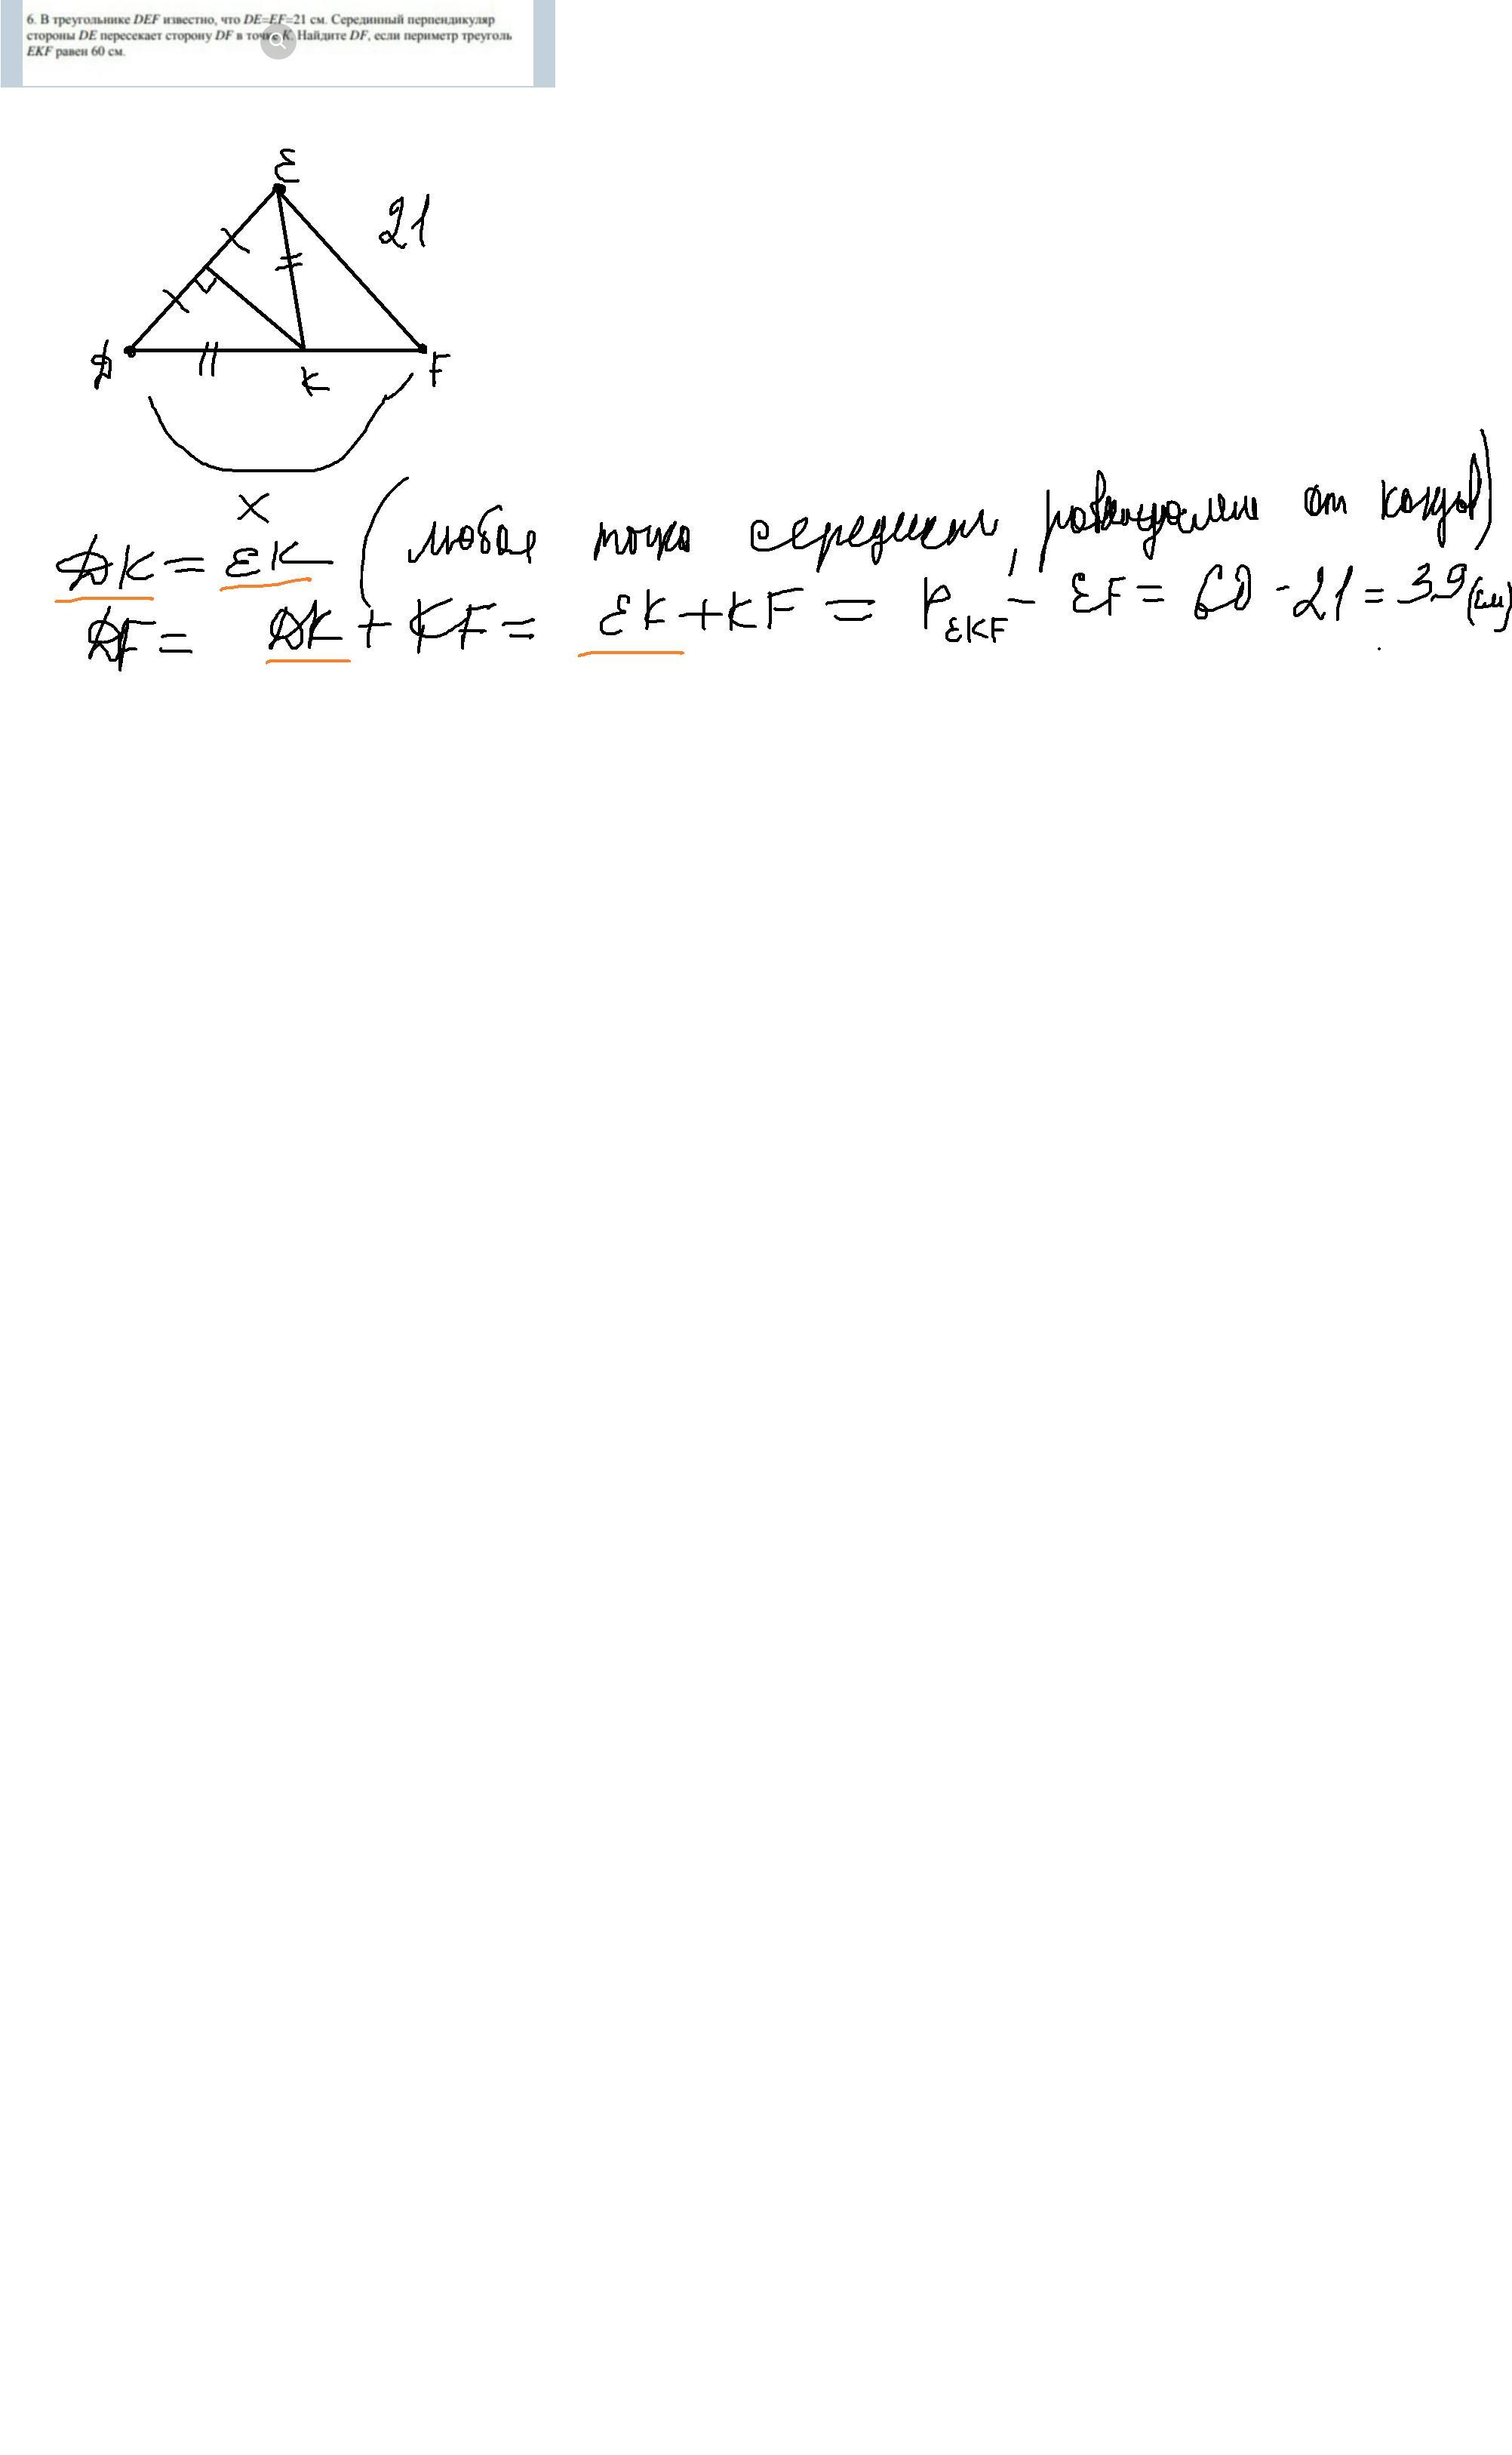 6. В треугольнике DEF известно, что DE=EF=21 см. Серединный перпендикуляр
стороны DE пересекает сторону DF в точке K. Найдите DF, если периметр треуголь
EKF равен 60 см.
E
21
D
K
F
x
DK = EK (любая точка середин, равноудален от концов)
DF = DK + KF = EK + KF = P EKF - EF = 60 - 21 = 39 (см)